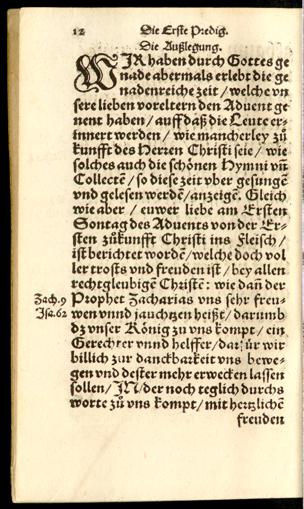 12 Die Erste Predig.
Die Außlegung.
WIR haben durch Gottes ge
nade abermals erlebt die ge
nadenreiche zeit / welche vn
sere lieben voreltern den Aduent ge
nent haben / auff daß die Leute er-
innert werden / wie mancherley zů
kunfft des Herzen Christi seie / wie
solches auch die schönen Hymni vñ
Collectē / so diese zeit vber gesungē
vnd gelesen werdē / anzeigē. Gleich
wie aber / euwer liebe am Ersten
Sontag des Aduents von der Er-
sten zůkunfft Christi ins Fleisch /
ist berichtet wordē / welche doch vol
ler trosts vnd freuden ist / bey allen
rechtgleubigē Christē: wie dañ der
Zach.9 Prophet Zacharias vns sehr freu-
Jsa.62 wen vnnd jauchtzen heißt / darumb
dz vnser König zu vns kompt / ein
Gerechter vnnd helffer / dafür wir
billich zur danckbarkeit vns bewe-
gen vnd dester mehr erwecken lassen
sollen / JN / der noch teglich durchs
worte zů vns kompt / mit hertzlichē
freuden